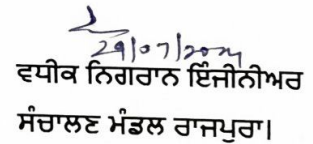 29/07/2024
ਵਧੀਕ ਨਿਗਰਾਨ ਇੰਜੀਨੀਅਰ
ਸੰਚਾਲਣ ਮੰਡਲ ਰਾਜਪੁਰਾ।